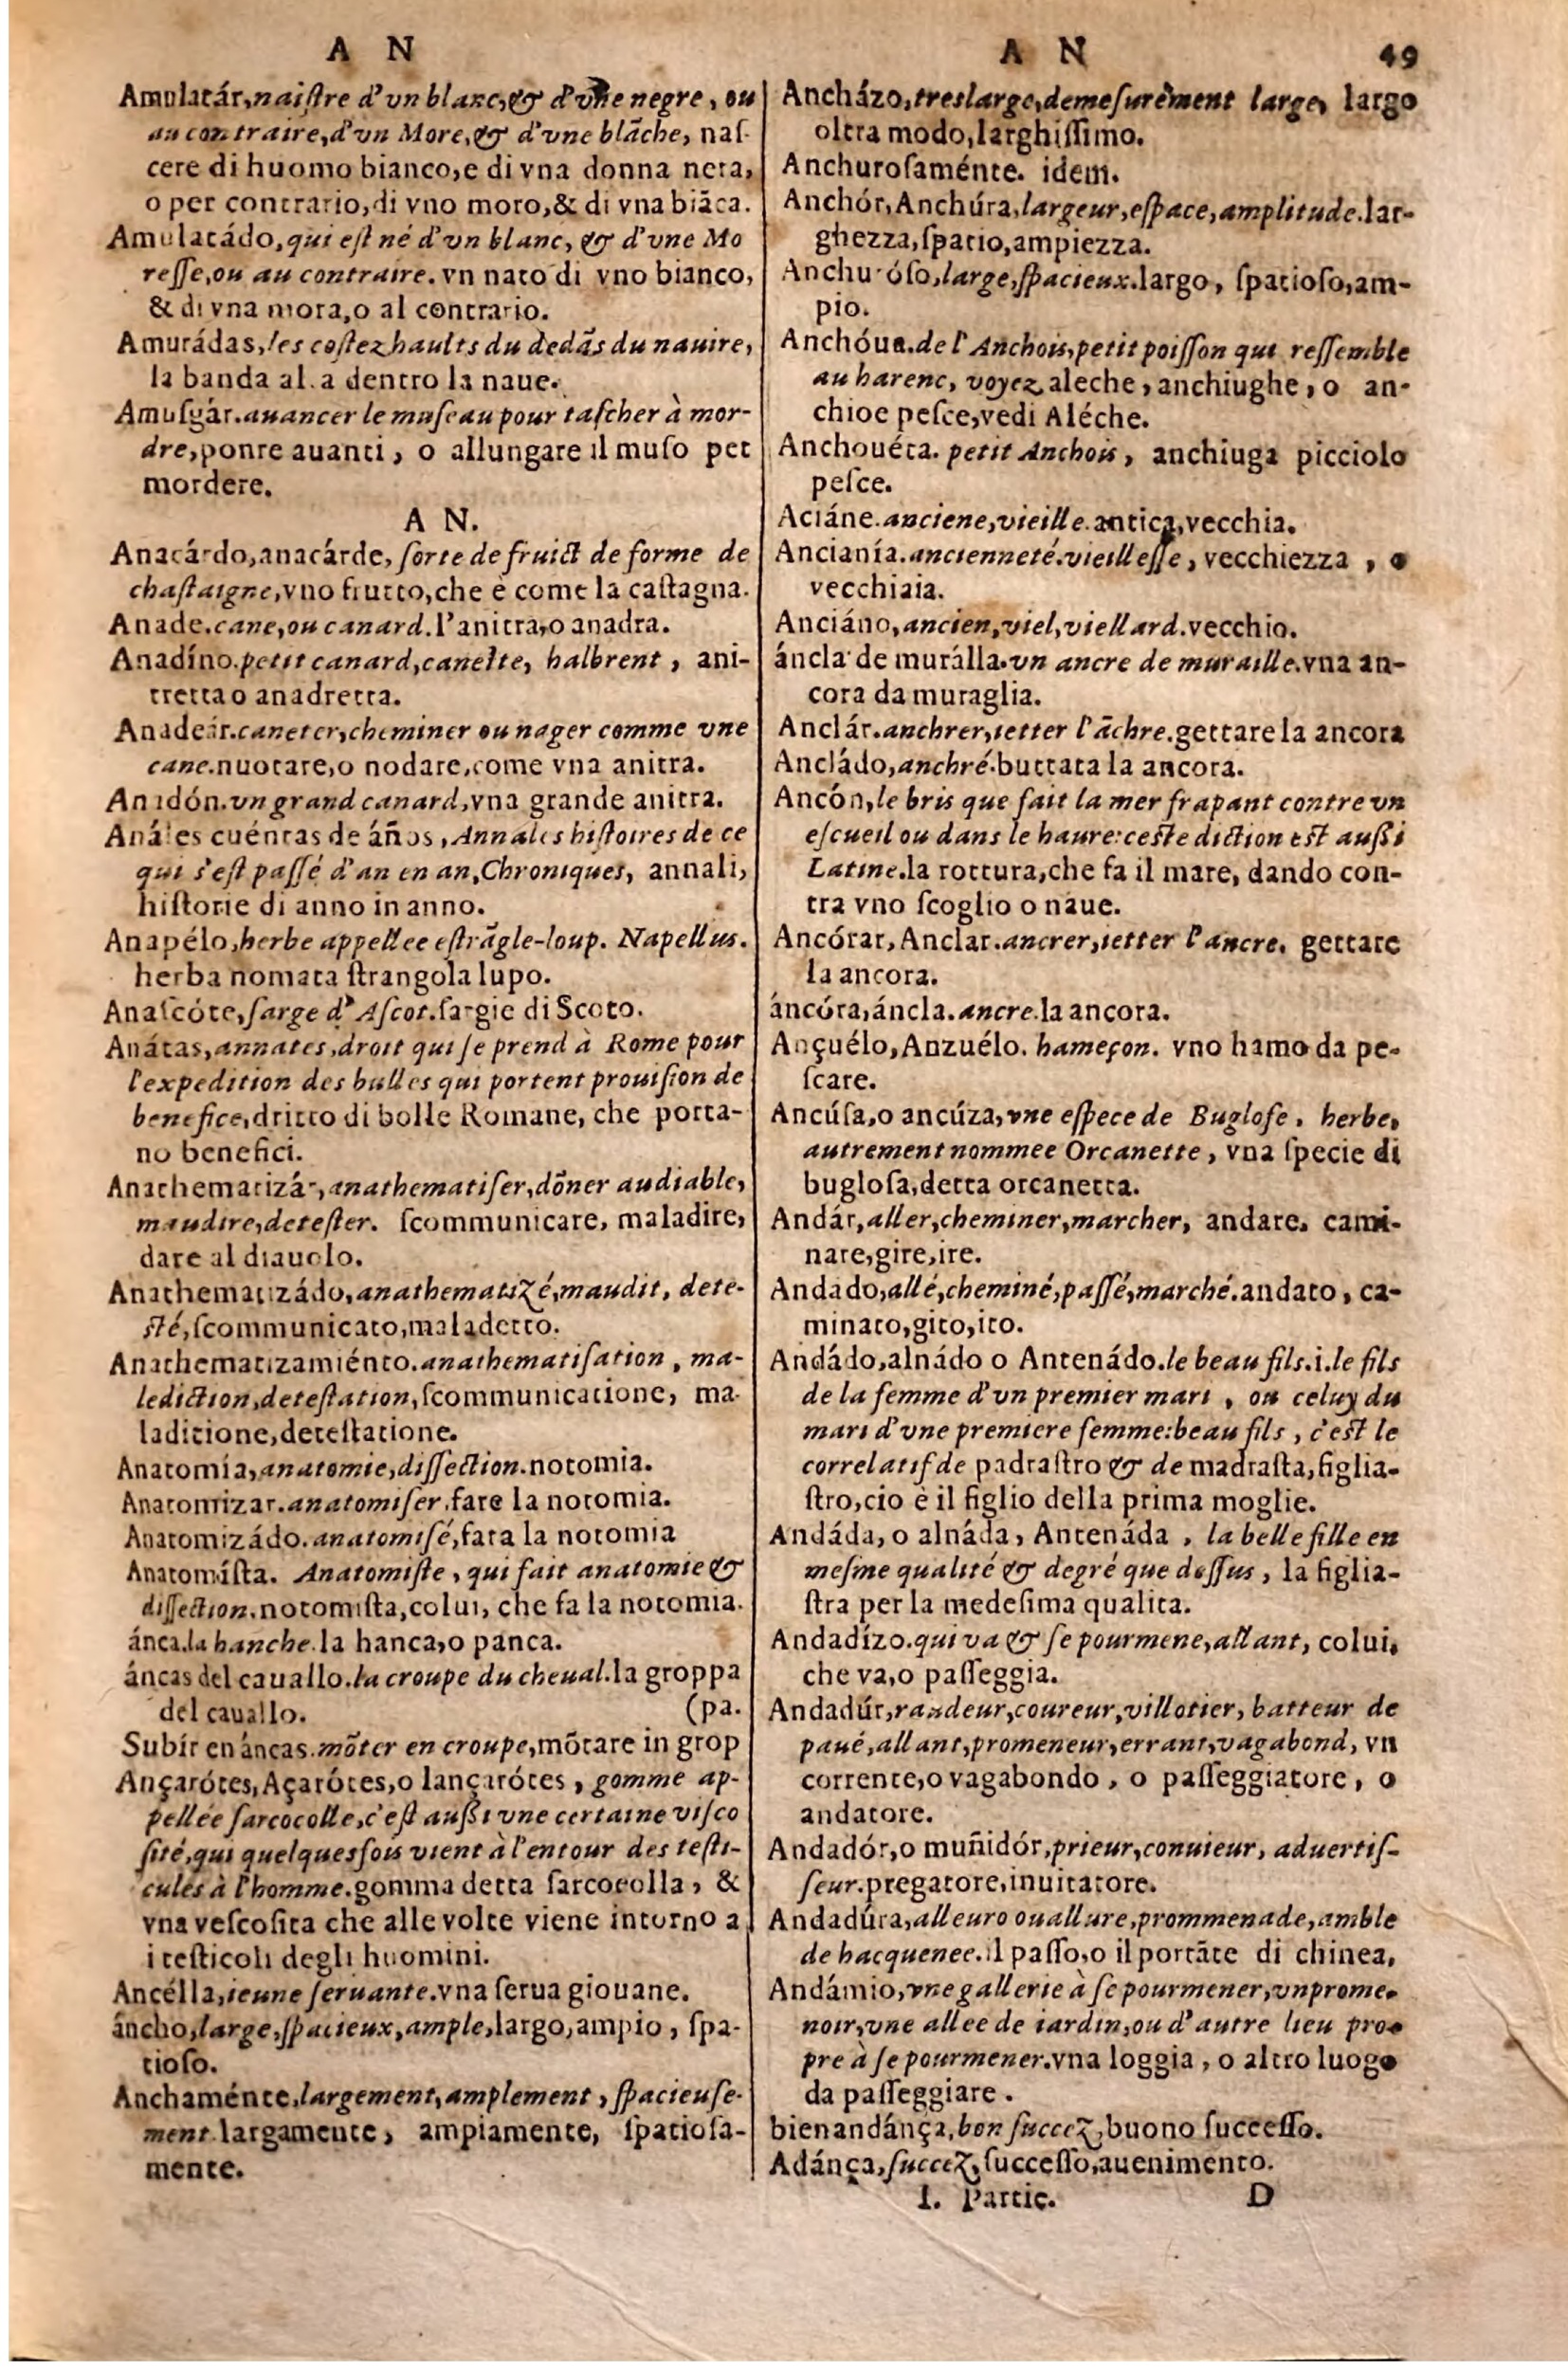 A N
Amulatár, naiſtre d'vn blanc, & d'vne negre, ou
au contraire, d'vn More, & d'vne blāche, naſ-
cere di huomo bianco, e di vna donna nera,
o per contrario, di vno moro, & di vna biāca.
Amulatádo, qui eſt né d'vn blanc, & d'vne Mo
reſſe, ou au contraire. vn nato di vno bianco,
& di vna mora, o al contrario.
Amurádas, les coſtez haults du dedās du nauire,
la banda al a dentro la naue.
Amuſgár. auancer le muſeau pour taſcher à mor-
dre, ponre auanti, o allungare il muſo per
mordere.
A N.
Anacárdo, anacárde, ſorte de fruict de forme de
chaſtaigne, vno frutto, che è come la caſtagna.
Anade. cane, ou canard. l'anitra, o anadra.
Anadíno. petit canard, canette, halbrent, ani-
tretta o anadretta.
Anadeár. caneter, cheminer ou nager comme vne
cane. nuotare, o nodare, come vna anitra.
Anadón. vn grand canard, vna grande anitra.
Análes cuéntas de áños, Annales hiſtoires de ce
qui s'eſt paſſé d'an en an, Chroniques, annali,
hiſtorie di anno in anno.
Anapélo, herbe appellee eſtrāgle-loup. Napellus.
herba nomata ſtrangola lupo.
Anaſcóte, ſarge d'Aſcot. ſargie di Scoto.
Anátas, annates, droit qui ſe prend à Rome pour
l'expedition des bulles qui portent prouiſion de
benefice, dritto di bolle Romane, che porta-
no benefici.
Anathematizár, anathematiſer, dōner au diable,
maudire, deteſter. ſcommunicare, maladire,
dare al diauolo.
Anathematizádo, anathematizé, maudit, dete-
ſté, ſcommunicato, maladetto.
Anathematizamiénto. anathematiſation, ma-
lediction, deteſtation, ſcommunicatione, ma-
laditione, deteſtatione.
Anatomía, anatomie, diſſection. notomia.
Anatomizar. anatomiſer, fare la notomia.
Anatomizádo. anatomiſé, fata la notomia
Anatomíſta. Anatomiſte, qui fait anatomie &
diſſection. notomiſta, colui, che fa la notomia.
ánca. la hanche. la hanca, o panca.
áncas del cauallo. la croupe du cheual. la groppa
del cauallo. (pa.
Subír en áncas. mōter en croupe, mōtare in grop
Ançarótes, Açarótes, o lançarótes, gomme ap-
pellee ſarcocolle, c'eſt auſſi vne certaine viſco
ſité, qui quelquesfois vient à l'entour des teſti-
cules à l'homme. gomma detta ſarcocolla, &
vna veſcoſita che alle volte viene intorno a
i teſticoli degli huomini.
Ancélla, ieune ſeruante. vna ſerua giouane.
áncho, large, ſpacieux, ample, largo, ampio, ſpa-
tioſo.
Anchaménte, largement, amplement, ſpacieuſe-
ment. largamente, ampiamente, ſpatioſa-
mente.
A N 49
Ancházo, treslarge, demeſurèment large, largo
oltra modo, larghiſſimo.
Anchuroſaménte. idem.
Anchór, Anchúra, largeur, eſpace, amplitude. lar-
ghezza, ſpatio, ampiezza.
Anchuróſo, large, ſpacieux. largo, ſpatioſo, am-
pio.
Anchóua. de l'Anchois, petit poiſſon qui reſſemble
au harenc, voyez aleche, anchiughe, o an-
chioe peſce, vedi Aléche.
Anchouéta. petit Anchois, anchiuga picciolo
peſce.
Aciáne. anciene, vieille. antica, vecchia.
Ancianía. ancienneté. vieilleſſe, vecchiezza, o
vecchiaia.
Anciáno, ancien, viel, viellard. vecchio.
áncla de murálla. vn ancre de muraille. vna an-
cora da muraglia.
Anclár. anchrer, ietter l'āchre. gettare la ancora
Ancládo, anchré. buttata la ancora.
Ancón, le bris que fait la mer frapant contre vn
eſcueil ou dans le haure: ceſte diction eſt auſſi
Latine. la rottura, che fa il mare, dando con-
tra vno ſcoglio o naue.
Ancórar, Anclar. ancrer, ietter l'ancre. gettare
la ancora.
áncóra, áncla. ancre. la ancora.
Ançuélo, Anzuélo. hameçon. vno hamo da pe-
ſcare.
Ancúſa, o ancúza, vne eſpece de Bugloſe, herbe,
autrement nommee Orcanette, vna ſpecie di
bugloſa, detta orcanetta.
Andár, aller, cheminer, marcher, andare. cami-
nare, gire, ire.
Andado, allé, cheminé, paſſé, marché. andato, ca-
minato, gito, ito.
Andádo, alnádo o Antenádo. le beau fils. i. le fils
de la femme d'vn premier mari, ou celuy du
mari d'vne premiere femme: beau fils, c'eſt le
correlatif de padraſtro & de madraſta, figlia-
ſtro, cio è il figlio della prima moglie.
Andáda, o alnáda, Antenáda, la belle fille en
meſme qualité & degré que deſſus, la figlia-
ſtra per la medeſima qualita.
Andadízo. qui va & ſe pourmene, allant, colui,
che va, o paſſeggia.
Andadúr, raudeur, coureur, villotier, batteur de
paué, allant, promeneur, errant, vagabond, vn
corrente, o vagabondo, o paſſeggiatore, o
andatore.
Andadór, o muñidór, prieur, conuieur, aduertiſ-
ſeur. pregatore, inuitatore.
Andadúra, alleuro ou allure, prommenade, amble
de hacquenee. il paſſo, o il portāte di chinea.
Andámio, vne gallerie à ſe pourmener, vn prome-
noir, vne allee de iardin, ou d'autre lieu pro-
pre à ſe pourmener. vna loggia, o altro luogo
da paſſeggiare.
bienandánça, bon ſuccez, buono ſucceſſo.
Adánça, ſuccez, ſucceſſo, auenimento.
I. Partie. D